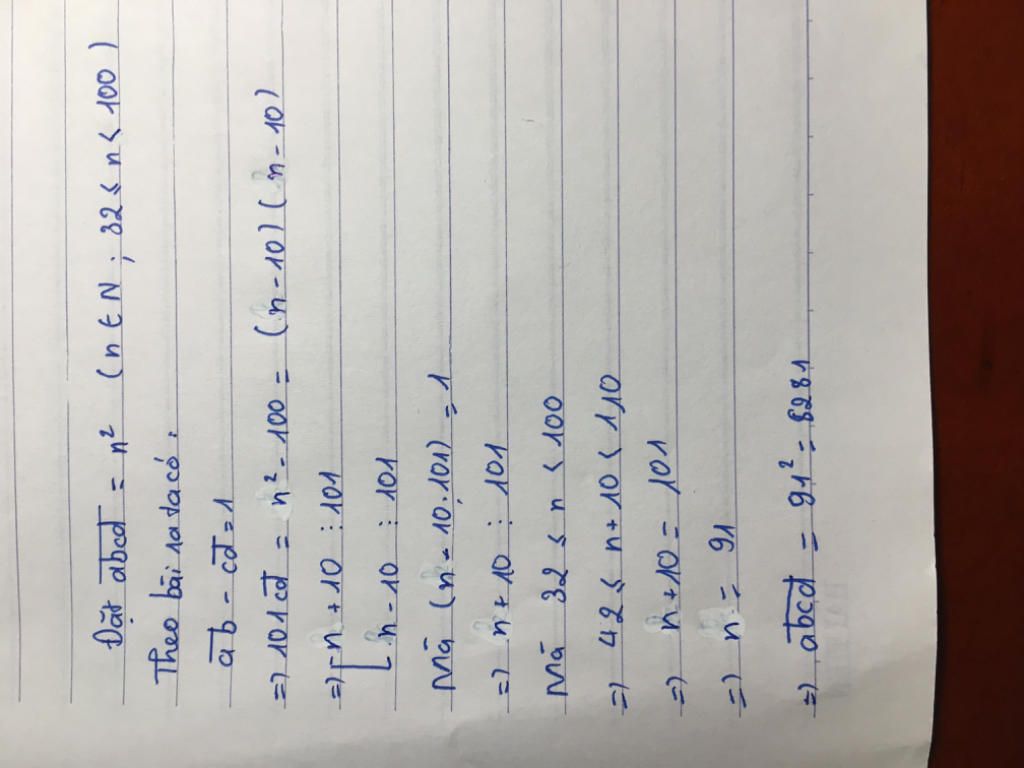 Đặt abcd = n² (n ∈ N ; 32 ≤ n < 100)
Theo bài ra ta có :
ab - cd = 1
=> 101cd = n² - 100 = (n - 10) (n - 10)
=> [ n + 10 ⋮ 101
n - 10 ⋮ 101
Mà (n - 10, 101) = 1
=> n + 10 ⋮ 101
Mà 32 ≤ n < 100
=> 42 ≤ n + 10 < 110
=> n + 10 = 101
=> n = 91
=> abcd = 91² = 8281